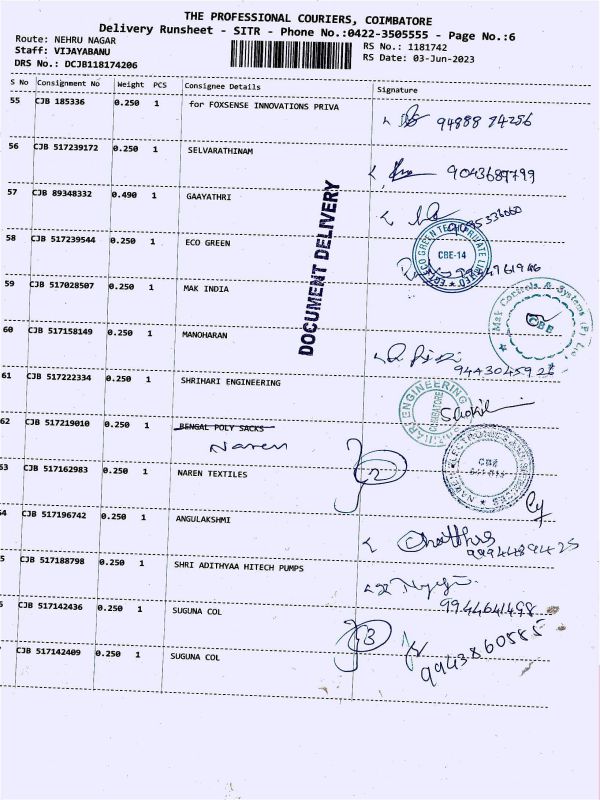 THE PROFESSIONAL COURIERS, COIMBATORE
Delivery Runsheet - SITR - Phone No.:0422-3505555 - Page No.:6
Route: NEHRU NAGAR
Staff: VIJAYABANU
DRS No.: DCJB118174206
RS No.: 1181742
RS Date: 03-Jun-2023
S No Consignment No Weight PCS Consignee Details Signature
55 CJB 185336 0.250 1 for FOXSENSE INNOVATIONS PRIVA
94888 74256
56 CJB 517239172 0.250 1 SELVARATHINAM
9043689799
57 CJB 89348332 0.490 1 GAAYATHRI
DOCUMENT DELIVERY
58 CJB 517239544 0.250 1 ECO GREEN
CBE-14
59 CJB 517028507 0.250 1 MAK INDIA
Mak Controls & Systems (P) Ltd
CBE
60 CJB 517158149 0.250 1 MANOHARAN
61 CJB 517222334 0.250 1 SHRIHARI ENGINEERING
SHRIHARI ENGINEERING
COIMBATORE
62 CJB 517219010 0.250 1 BENGAL POLY SACKS
Naren
CBE
53 CJB 517162983 0.250 1 NAREN TEXTILES
2
54 CJB 517196742 0.250 1 ANGULAKSHMI
9994489425
5 CJB 517188798 0.250 1 SHRI ADITHYAA HITECH PUMPS
9944641498
CJB 517142436 0.250 1 SUGUNA COL
3
9943860585
CJB 517142409 0.250 1 SUGUNA COL